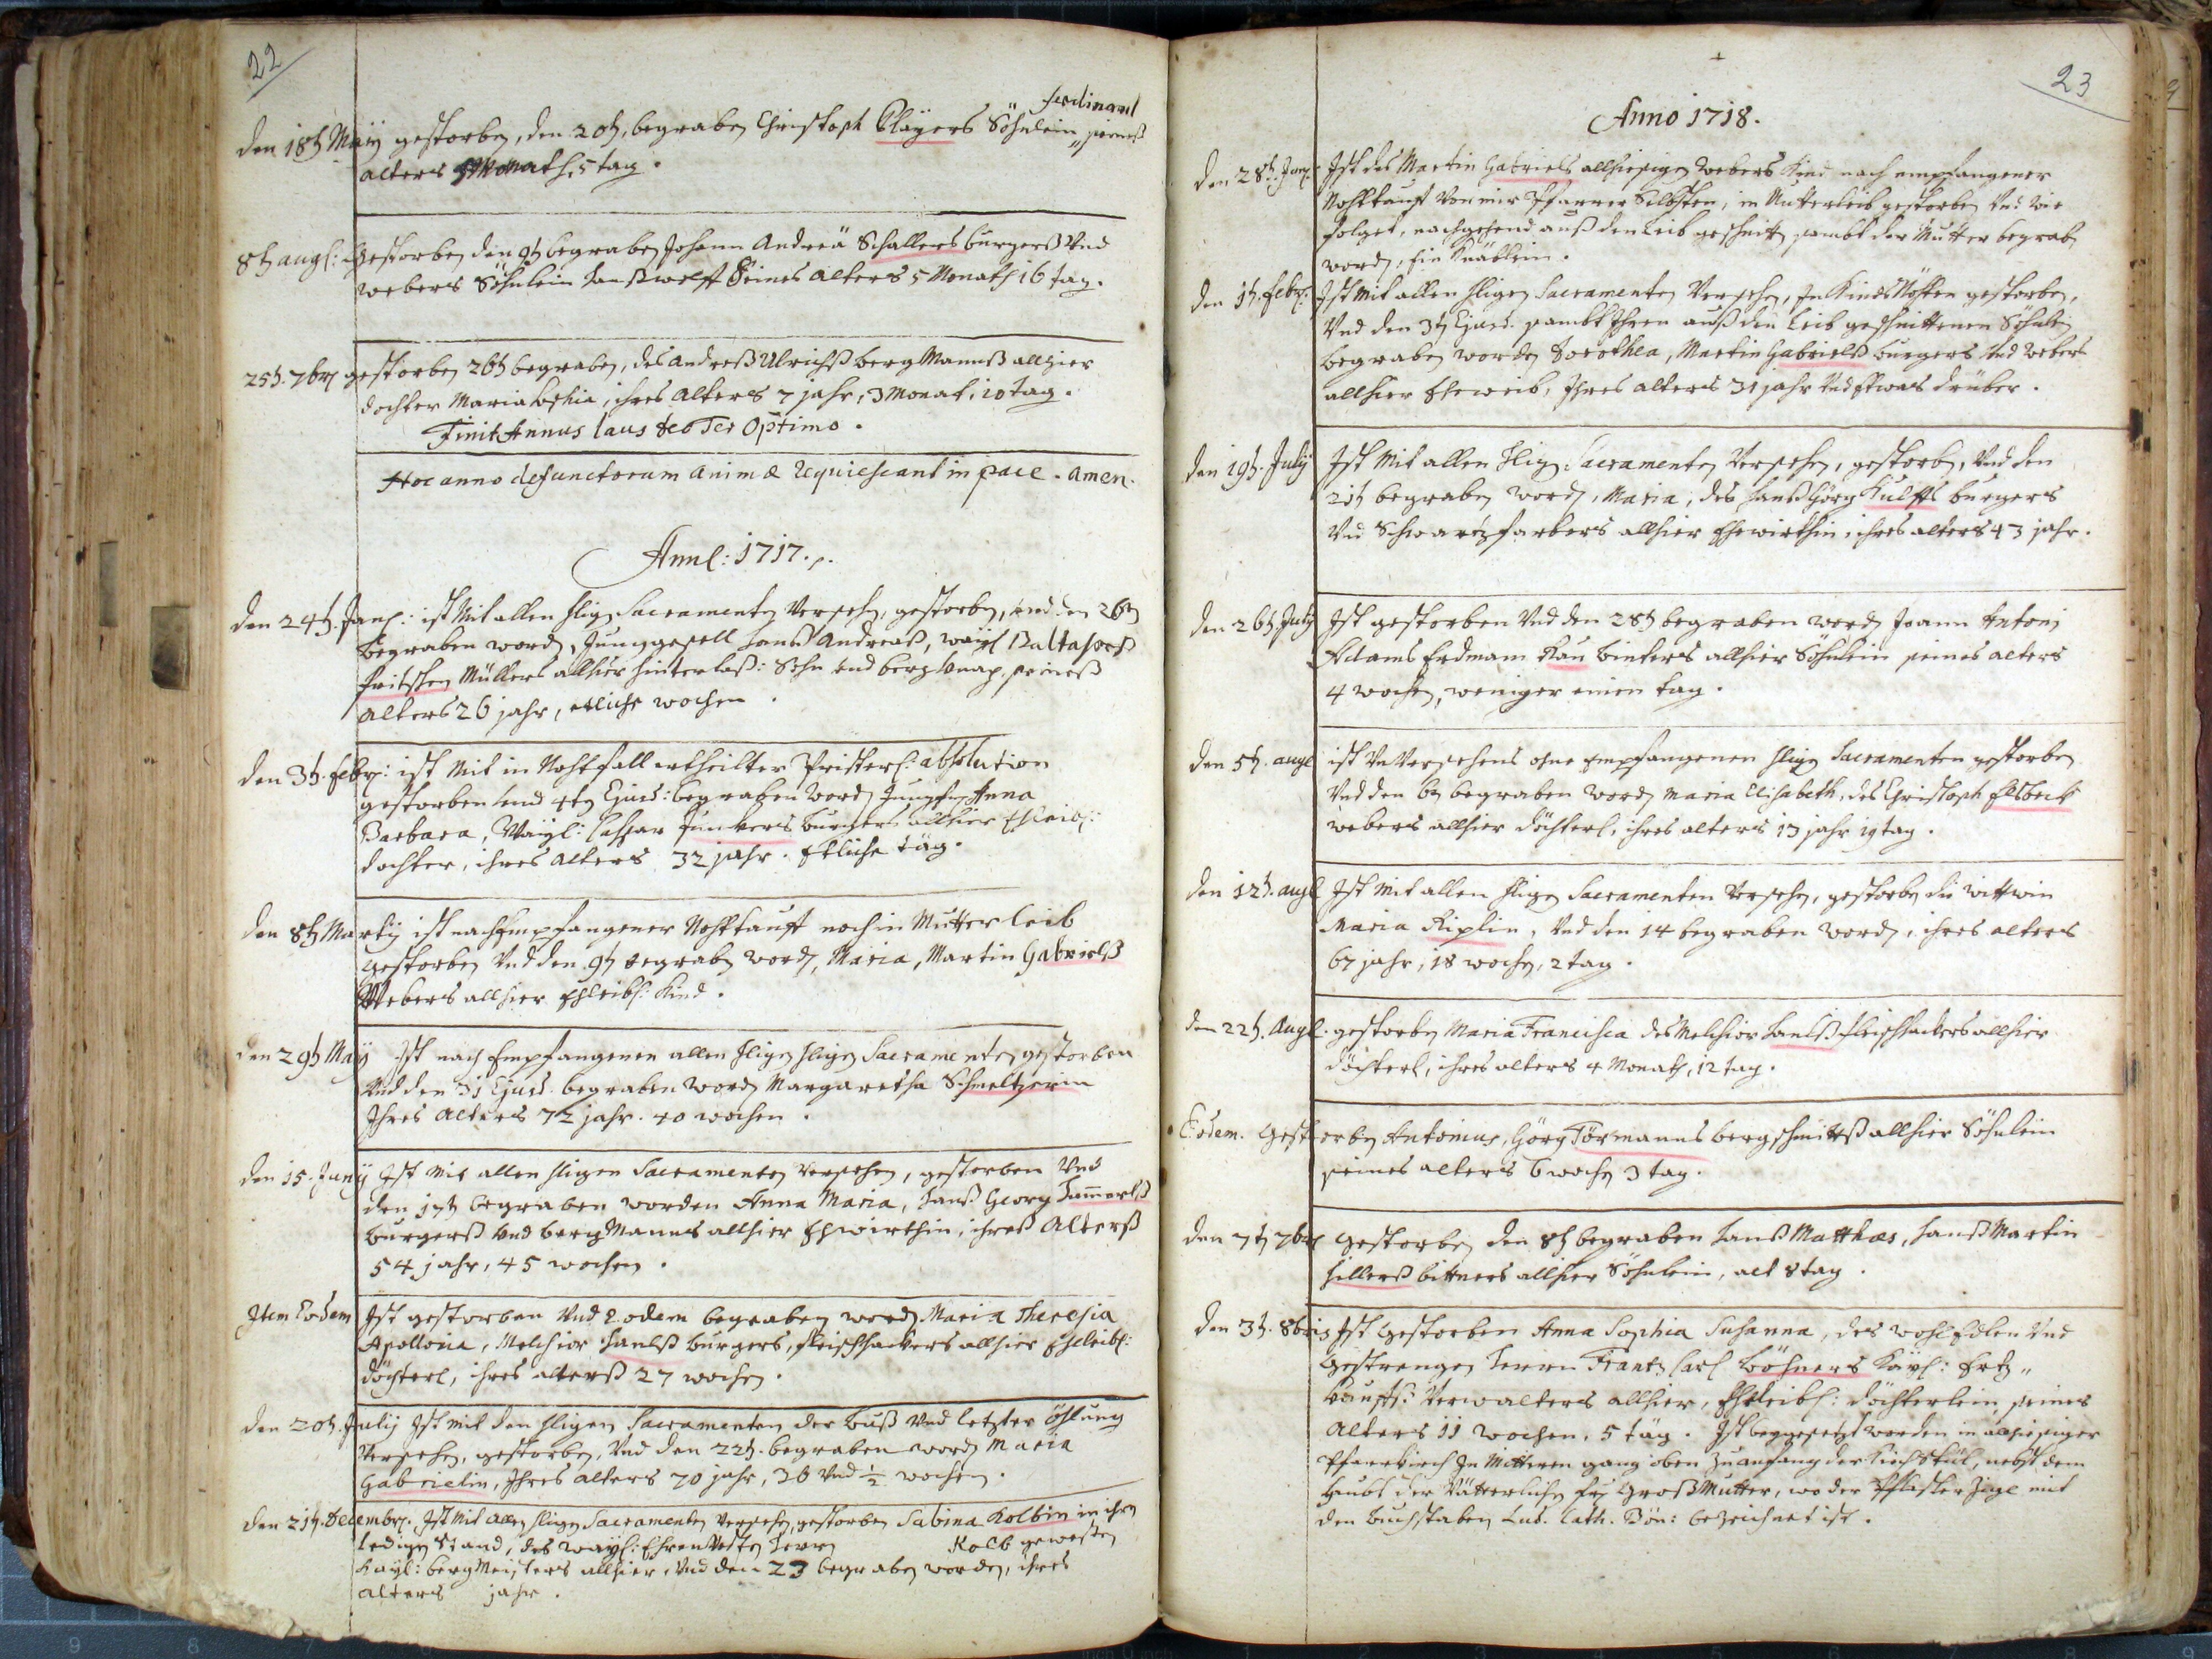 22
ferdinand
den 18t. Maÿ gestorben, den 20t. begraben Christoph Claÿers Söhnlein seines
alters Monath, 5 tag.
8t augl: Gestorben den 9t begraben Johann Andreä Schallers burgers Vnd
webers Söhnlein Hanß wolff Seines alters 5 Monath 16 tag.
25t. 7br gestorben 26t begraben, des Andreß Ulrichß berg Manns allhier
dochter Maria ihres alters 7 jahr, 3 Monat, 10 tag.
Finit Annus laus deo Ter Optimo.
Hoc anno defunctorum animæ Requiescant in pace. amen.
Annl: 1717.
den 24t. Janl: ist Mit allen hlign Sacramenten Versehen, gestorben, und den 26t
begraben word, Junggesell Hanß Andreaß, waÿl Baltasars
fritschen Müllers allhier hinterlaß: Sohn und bergknap. seineß
alters 26 jahr, etliche wochen.
den 3t. febr: ist Mit in Nohtfall ertheilter Pristerl: absolution
gestorben und 4t Ejusd: begraben word Jungfr Anna
Barbara, Waÿl: Caspar Junkers burgers allhier Ehleibl:
dochter, ihres alters 32 jahr. Etliche täg.
den 8t Martij ist nach Empfangener Nohttauff noch in Mutter leib
gestorben Vnd den 9t begrabn word, Maria, Martin Gabrielß
Webers allhier Ehleibl: Kind.
den 29t Maÿ Ist nach Empfangenen allen hlign hligen Sacramenten gestorben
Vnd den 31 Ejusd. begraben word Margaretha Schmeltzerin
Ihres alters 72 jahr. 40 wochen.
den 15. Junÿ Ist Mit allen hligen Sacramenten Versehen, gestorben Vnd
den 17t begraben worden Anna Maria, Hanß Georg Hamerlß
burgerß Vnd berg Manns allhier Ehwirthin, ihreß Alterß
54 jahr, 45 wochen.
Item Eodem Ist gestorben Vnd Eodem begraben word Maria Theresia
Apollonia, Melchior Hanlß burgers, fleischhackers allhier Ehleibl:
döchterl, ihres alterß 27 wochen.
den 20t. Julij Ist Mit den hligen Sacramenten der buß Vnd letzter öhlung
Versehen, gestorben, Vnd den 22t. begraben word Maria
Gabrielin, Ihres alters 70 jahr, 36 Vnd ½ wochen.
den 21t. Decembr. Ist Mit allen hligen Sacramenten Versehen, gestorben Sabina Kolbin in ihrn
ledigen Stand, des waÿl: Ehrenvesten Herrn Kolb gewesten
Kaÿl: berg Meisters allhier, Vnd den 23 begraben worden, ihres
alters jahr.
23
Anno 1718.
den 28t. Jan: Ist des Martin Gabriels allhiesigen Webers Kind nach empfangener
Nohttauff Von mir Pfarrer Selbsten, in Mutterleib gestorben Vnd wie
folget, nachgehend auß den Leib geschnitt sambt der Mutter begrab
word, ein Knäblein.
den 1t. febr: Ist Mit allen hligen Sacramenten Versehen, In Kinds Nöhten gestorben,
Vnd den 3t Ejusd. sambt Ihren auß den Leib geschnittenen Söhnlein
begraben worden Dorothea, Martin Gabrielß burgers Vnd Webers
allhier Eheweib, Ihres alters 31 jahr Vnd Etwas drüber.
den 19t. Julij Ist Mit allen Hlign. Sacramenten Versehen, gestorben, Vnd den
21t begraben word, Maria, des Hanß Görg Kulffs burgers
Vnd Schwartzfarbers allhier Ehewirthin, ihres alters 43 jahr.
den 26t July Ist gestorben Vnd den 28t begraben word Joann Antonj
Adams Erdmann Rau binders allhier Söhnlein seines alters
4 wochen, weniger einen tag.
den 5t. augl ist Vnversehens ohne Empfangenen hlign Sacramenten gestorben
Vnd den 6t begraben word Maria Elisabeth, des Christoph Elsbeck
webers allhier döchterl, ihres alters 13 jahr 19 tag.
den 12t. augl Ist Mit allen hligen Sacramenten Versehen, gestorben die wittwin
Maria Riplin, Vnd den 14 begraben word, ihres alters
67 jahr, 18 wochen, 2 tag.
den 22t. Augl. gestorben Maria Francisca des Melchior Hanlß fleischhackers allhier
döchterl, ihres alters 4 Monath, 12 tag.
Eodem. Gestorben Antonius, Görg Törmanns bergschmitß allhier Söhnlein
seines alters 6 wochen 3 tag.
den 7t 7br Gestorben den 8t begraben Hanß Matthæs, Hanß Martin
Hillerß bittners allhier Söhnlein, alt 8 tag.
den 3t. 8bris Ist Gestorben Anna Sophia Susanna, des wohl Edlen Vnd
Gestrengen Herrn Frantz Carl Böhners Kaÿl: Ertz„
Kauffs: Verwalters allhier, Ehleibl: döchterlein seines
Alters 11 wochen, 5 täg. Ist beygesetzt worden in allhiesiger
Pfarrkirch In Mitteren gang oben zu anfang der Kirchstül, nebst dem
Haubt der Vätterlichen Großmutter, wo der Pflaster Zigl mit
den buchstaben Lud. Cath. Bön: bezeichnet ist.